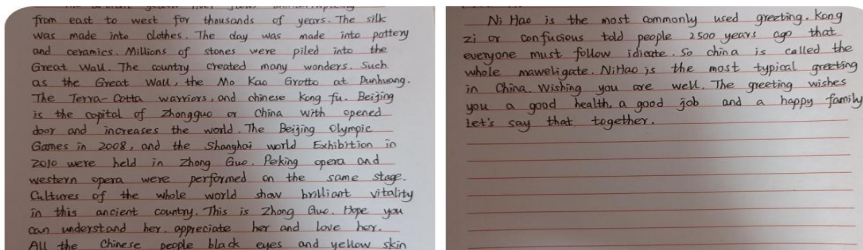 from east to west for thousands of years. The silk
was made into clothes. The day was made into pottery
and ceramics. Millions of stones were piled into the
Great Wall. The country created many wonders. Such
as the Great Wall, the Mo Kao Grotto at Dunhuang.
The Terra-Cotta warriors, and chinese Kong fu. Beijing
is the capital of Zhongguo or China with opened
door and increases the world. The Beijing Olympic
Games in 2008, and the Shanghai world Exhibition in
2010 were held in Zhong Guo. Peking opera and
western opera were performed on the same stage.
Cultures of the whole world show brilliant vitality
in this ancient country. This is Zhong Guo. Hope you
can understand her, appreciate her and love her.
All the Chinese people black eyes and yellow skin
Ni Hao is the most commonly used greeting. Kong
zi or Confucious told people 2500 years ago that
everyone must follow idicate. So china is called the
whole maweligate. NiHao is the most typical greeting
in China. Wishing you are well. The greeting wishes
you a good health, a good job and a happy family
Let's say that together.